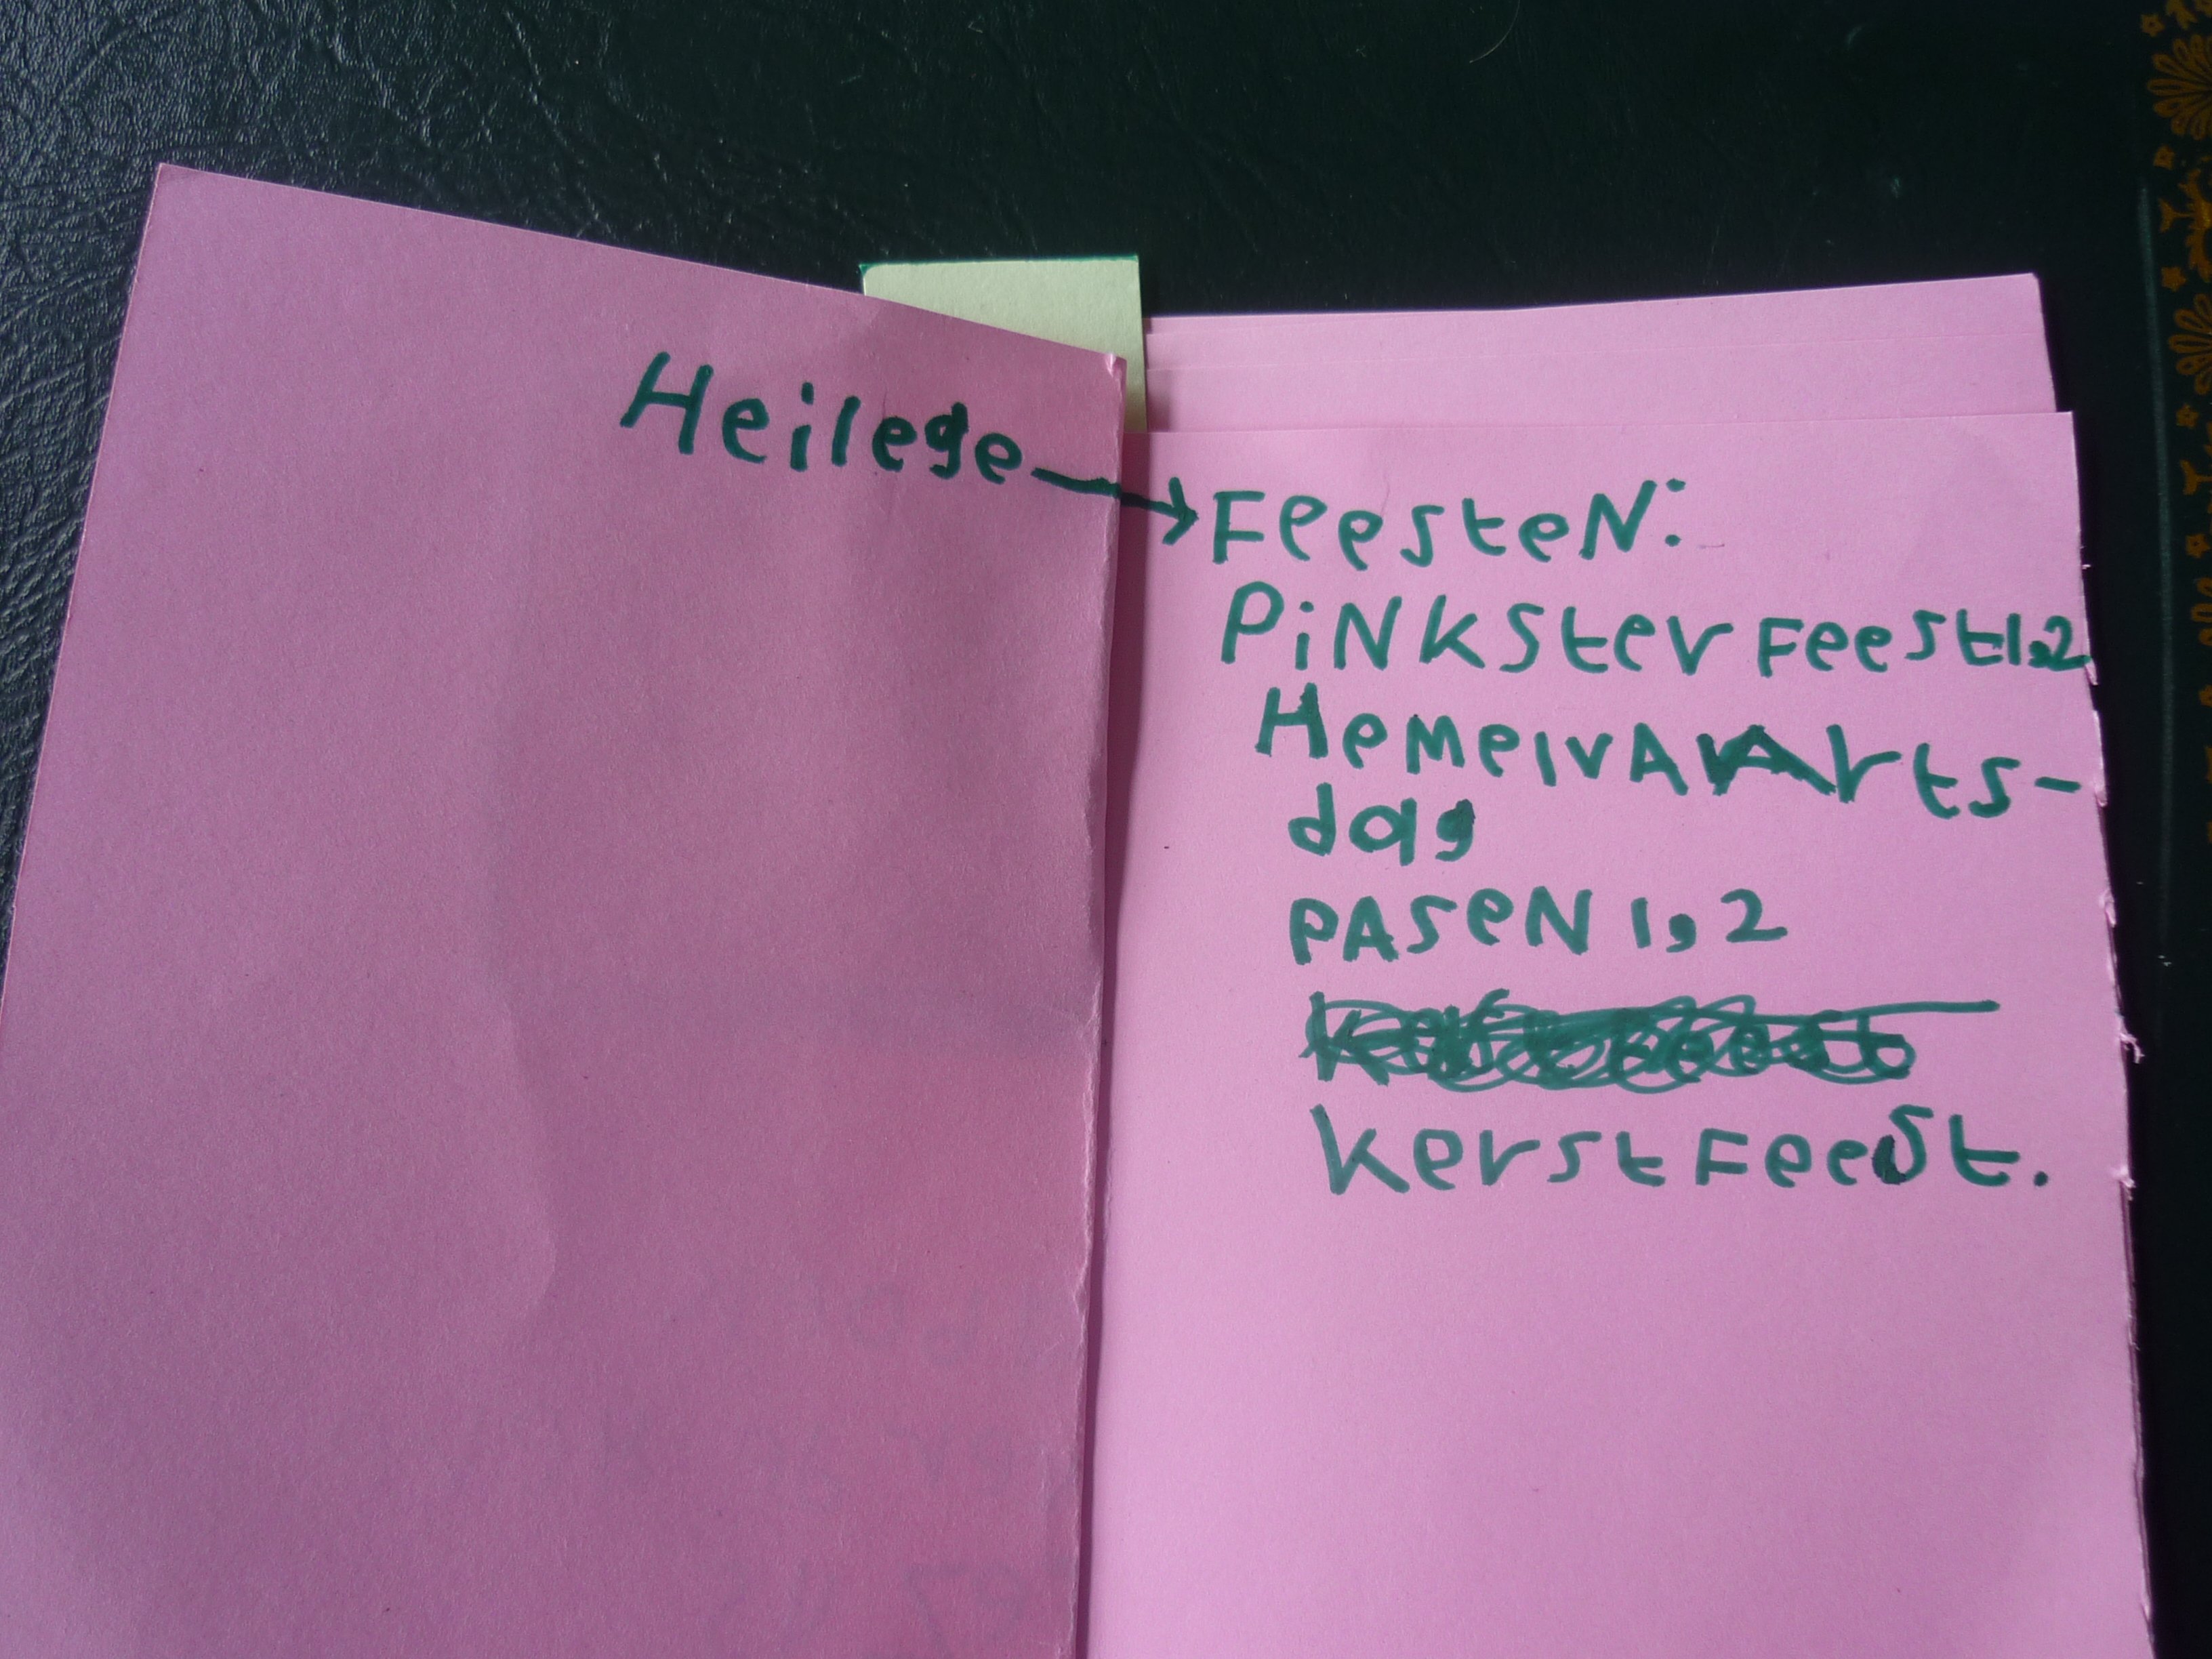 Heilege → FeesteN:
PiNkster Feest1,2
HemelvAArts-
dag
PAseN 1,2
kerstFeest.